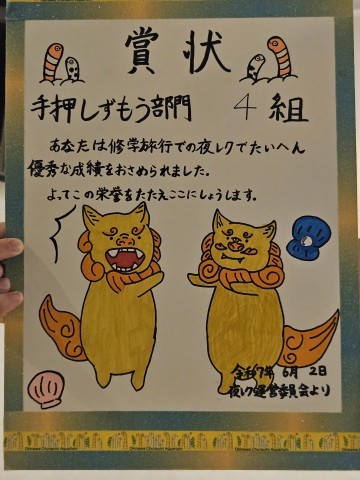 賞状
手押しずもう部門 4組
あなたは修学旅行での夜レクでたいへん
優秀な成績をおさめられました。
よってこの栄誉をたたえここにしょうします。
令和7年 6月 2日
夜レク運営委員会より
Okinawa Churaumi Aquarium